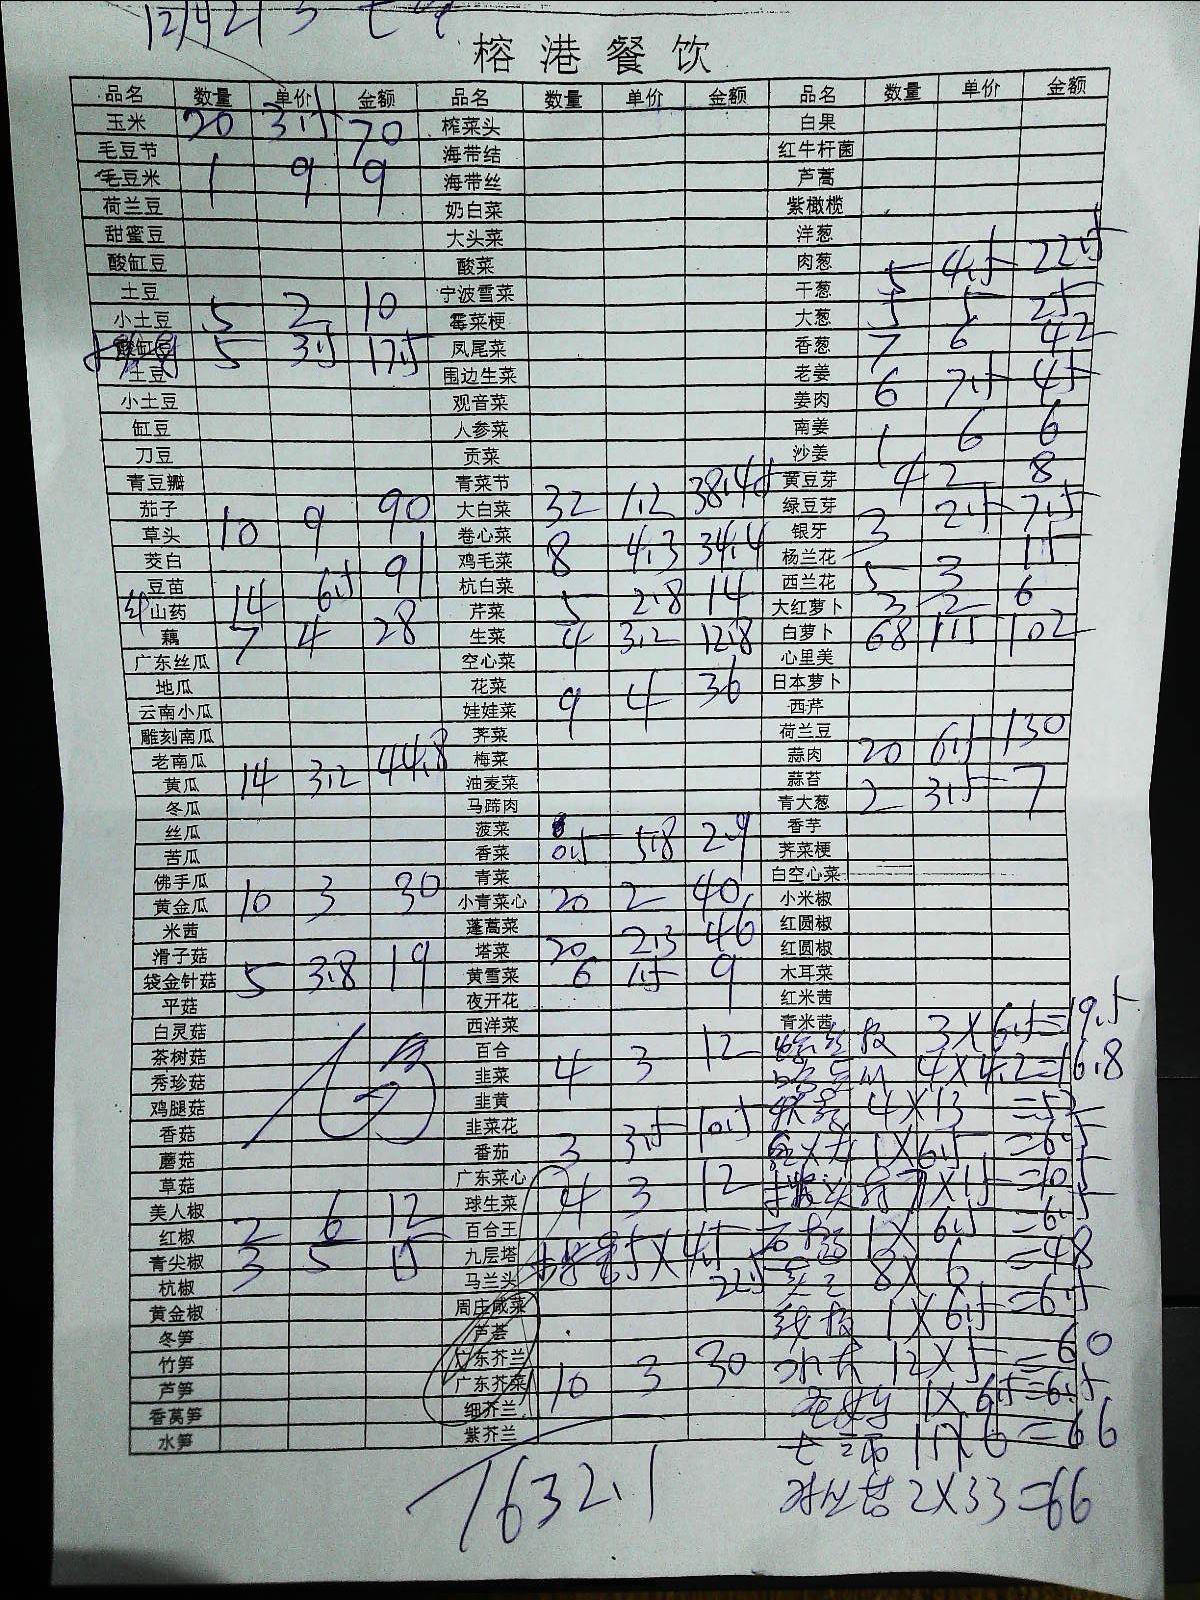 榕港餐饮
品名 数量 单价 金额 品名 数量 单价 金额 品名 数量 单价 金额
玉米 20 3.5 70 榨菜头 白果
毛豆节 海带结 红牛杆菌
毛豆米 1 9 9 海带丝 芦蒿
荷兰豆 奶白菜 紫橄榄
甜蜜豆 大头菜 洋葱
酸缸豆 酸菜 肉葱 5 4.5 22.5
土豆 5 2 10 宁波雪菜 干葱
小土豆 霉菜梗 大葱 5 5 25
酸缸豆 5 3.5 17.5 凤尾菜 香葱 7 6 42
土豆 围边生菜 老姜 6 7.5 45
小土豆 观音菜 姜肉
缸豆 人参菜 南姜 1 6 6
刀豆 贡菜 沙姜
青豆瓣 青菜节 黄豆芽 4 2 8
茄子 10 9 90 大白菜 32 1.2 38.4 绿豆芽 3 2.5 7.5
草头 卷心菜 8 4.3 34.4 银牙
茭白 鸡毛菜 杨兰花 5 3 15
豆苗 14 6.5 91 杭白菜 5 2.8 14 西兰花
山药 芹菜 大红萝卜 3 2 6
藕 7 4 28 生菜 4 3.2 12.8 白萝卜 68 1.5 102
广东丝瓜 空心菜 心里美
地瓜 花菜 9 4 36 日本萝卜
云南小瓜 娃娃菜 西芹
雕刻南瓜 荠菜 荷兰豆
老南瓜 梅菜 蒜肉 20 6.5 130
黄瓜 14 3.2 44.8 油麦菜 蒜苔
冬瓜 马蹄肉 青大葱 2 3.5 7
丝瓜 菠菜 香芋
苦瓜 香菜 0.5 5.8 2.9 荠菜梗
佛手瓜 青菜 白空心菜
黄金瓜 10 3 30 小青菜心 20 2 40 小米椒
米茜 蓬蒿菜 红圆椒
滑子菇 塔菜 20 2.3 46 红圆椒
袋金针菇 5 3.8 19 黄雪菜 6 1.5 9 木耳菜
平菇 夜开花 红米茜
白灵菇 西洋菜 青米茜 3×6.5=19.5
茶树菇 百合 4 3 12 4×4.2=16.8
秀珍菇 韭菜
鸡腿菇 韭黄 4×13
香菇 韭菜花 3 3.5 10.5 1×6.5=6.5
蘑菇 番茄
草菇 广东菜心 4 3 12
美人椒 球生菜 1×6.5=6.5
红椒 2 6 12 百合王
青尖椒 3 5 15 九层塔 5×4.5 8×6=48
杭椒 马兰头 22.5
黄金椒 周庄咸菜 1×6.5=6.5
冬笋 芦荟
竹笋 广东芥兰 12×5=60
芦笋 广东芥菜 10 3 30
香莴笋 细芥兰 1×6.5=6.5
水笋 紫芥兰 11×6=66
1632.1 2×33=66